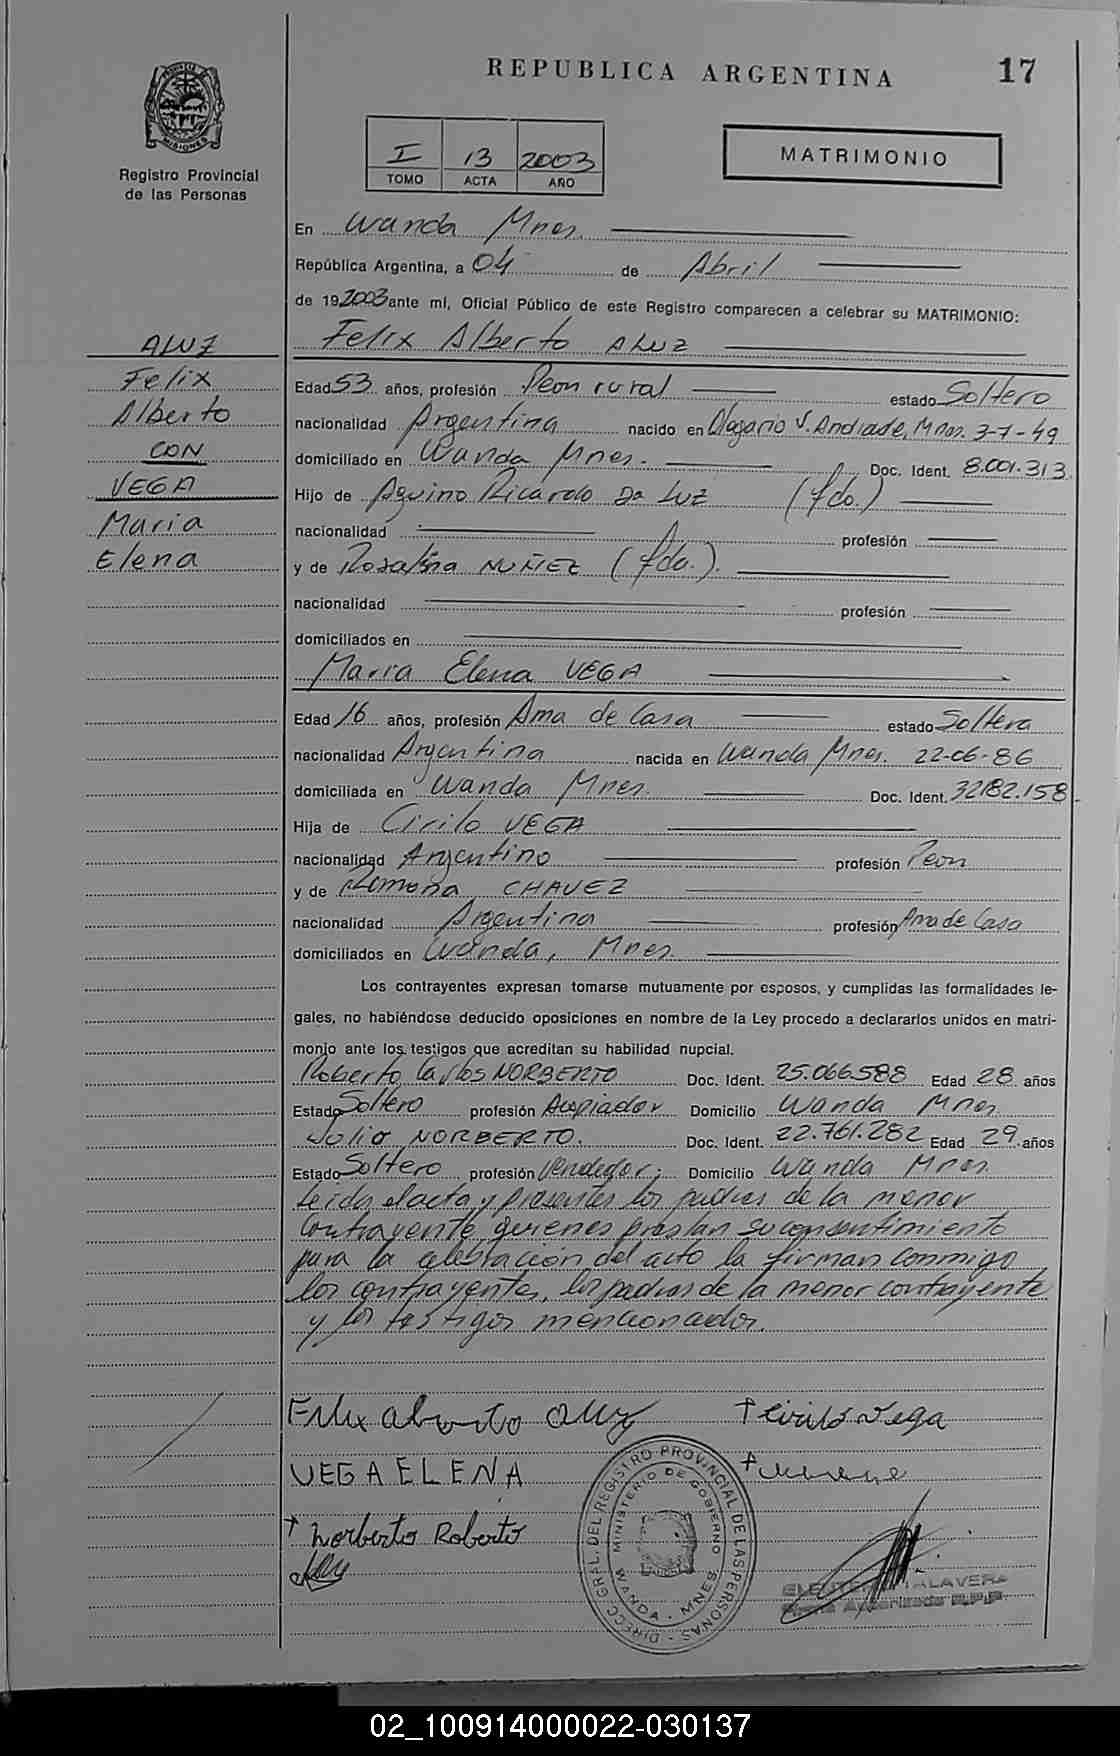 REPUBLICA ARGENTINA
17
PROVINCIA DE MISIONES
Registro Provincial
de las Personas
I 13 2003
TOMO ACTA AÑO
MATRIMONIO
En Wanda Mnes.
República Argentina, a 04 de Abril
de 192003 ante mí, Oficial Público de este Registro comparecen a celebrar su MATRIMONIO:
ALUZ
Felix
Alberto
CON
VEGA
Maria
Elena
Felix Alberto ALUZ
Edad 53 años, profesión Peon rural estado Soltero
nacionalidad Argentina nacido en Olegario V. Andrade, Mnes. 3-7-49
domiciliado en Wanda Mnes. Doc. Ident. 8.001.313
Hijo de Aquino Ricardo Da LUZ (fdo.)
nacionalidad profesión
y de Rosalina NUÑEZ (fda.).
nacionalidad profesión
domiciliados en
Maria Elena VEGA
Edad 16 años, profesión Ama de Casa estado Soltera
nacionalidad Argentina nacida en Wanda Mnes. 22-06-86
domiciliada en Wanda Mnes. Doc. Ident. 32182.158
Hija de Cirilo VEGA
nacionalidad Argentino profesión Peon
y de Romona CHAVEZ
nacionalidad Argentina profesión Ama de Casa
domiciliados en Wanda, Mnes.
Los contrayentes expresan tomarse mutuamente por esposos, y cumplidas las formalidades le-
gales, no habiéndose deducido oposiciones en nombre de la Ley procedo a declararlos unidos en matri-
monio ante los testigos que acreditan su habilidad nupcial.
Roberto Carlos NORBERTO Doc. Ident. 25.066.588 Edad 28 años
Estado Soltero profesión Acopiador Domicilio Wanda Mnes.
Julio NORBERTO. Doc. Ident. 22.761.282 Edad 29 años
Estado Soltero profesión Vendedor; Domicilio Wanda Mnes.
Leida el acta y presentes los padres de la menor
contrayente quienes prestan su consentimiento
para la celebración del acto la firman conmigo
los contrayentes, los padres de la menor contrayente
y los testigos mencionados.
Felix alberto aluz
Cirilo Vega
VEGA ELENA
Norberto Roberto
DIREC. GRAL. DEL REGISTRO PROVINCIAL DE LAS PERSONAS
MINISTERIO DE GOBIERNO
WANDA - MNES.
TALAVERA
02_100914000022-030137